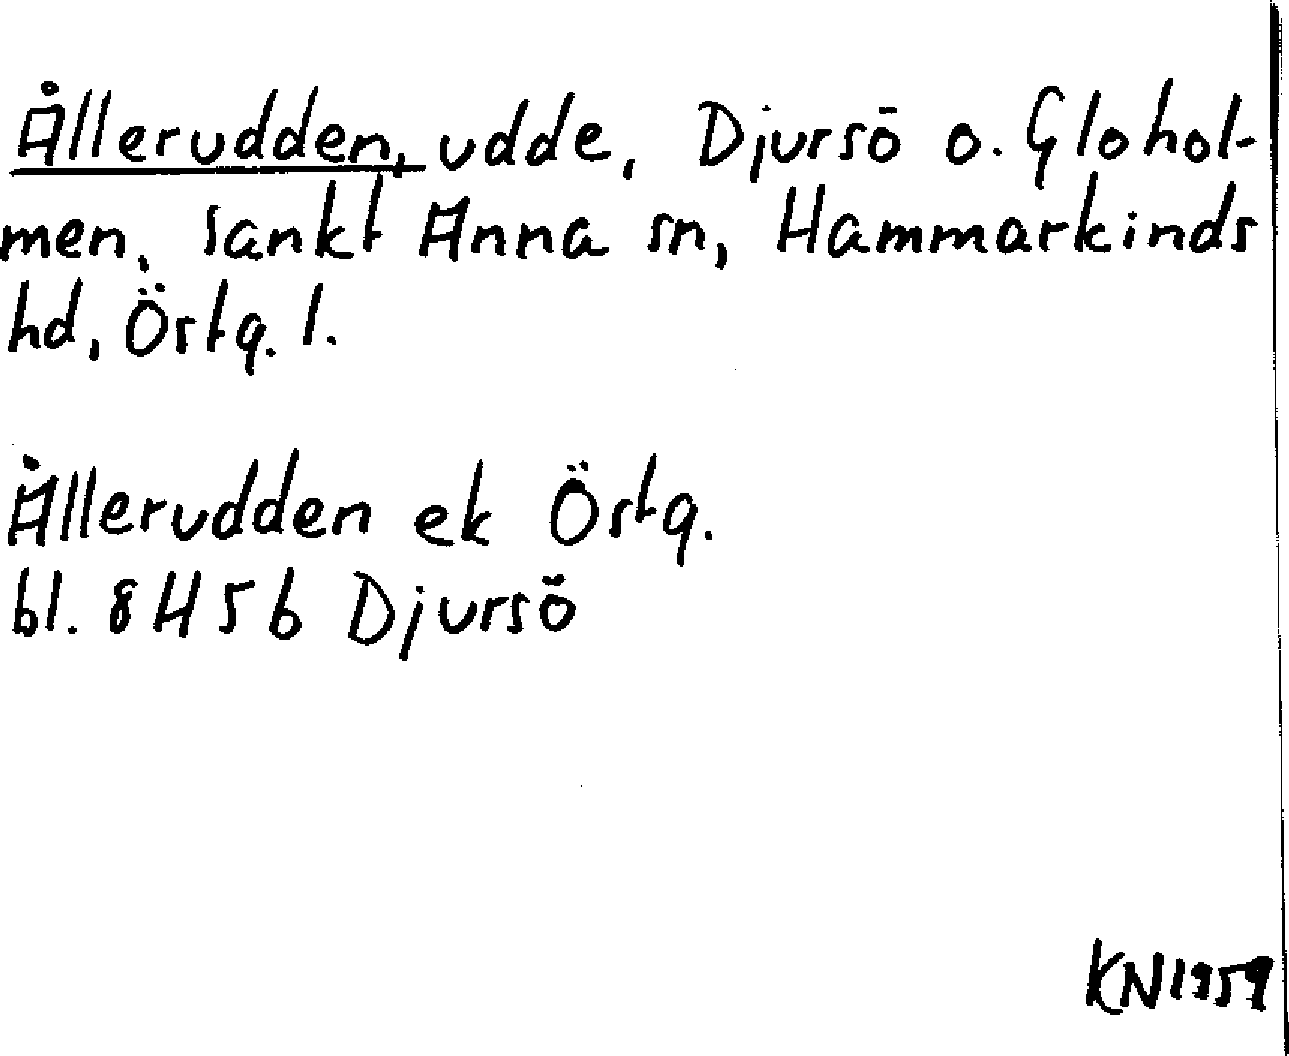 Ållerudden, udde, Djursö o. Glohol-
men, Sankt Anna sn, Hammarkinds
hd, Östg. l.
Ållerudden ek Östg.
bl. 8H5b Djursö
KN1959